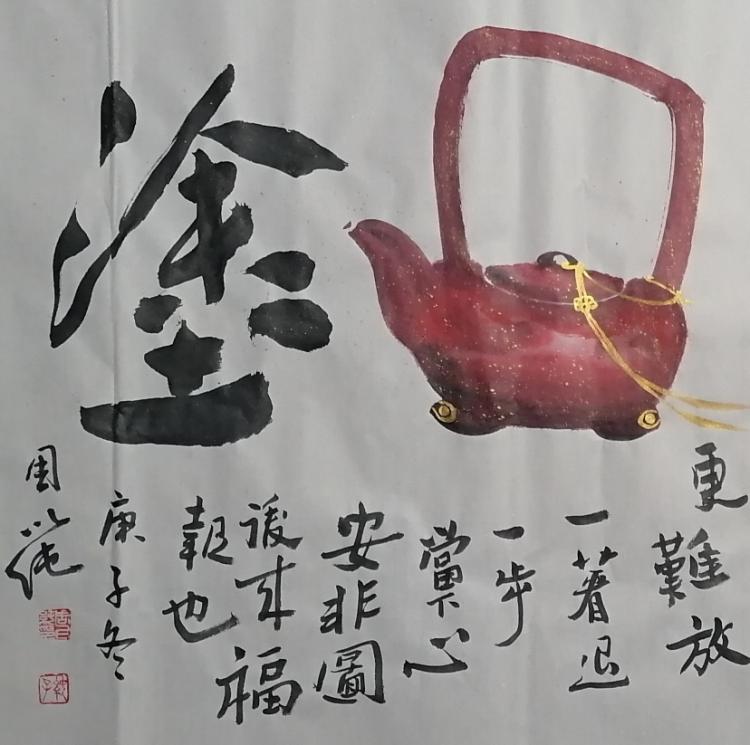 塗
更難放
一著退
一步
當下心
安非圖
後來福
報也
庚子冬
周